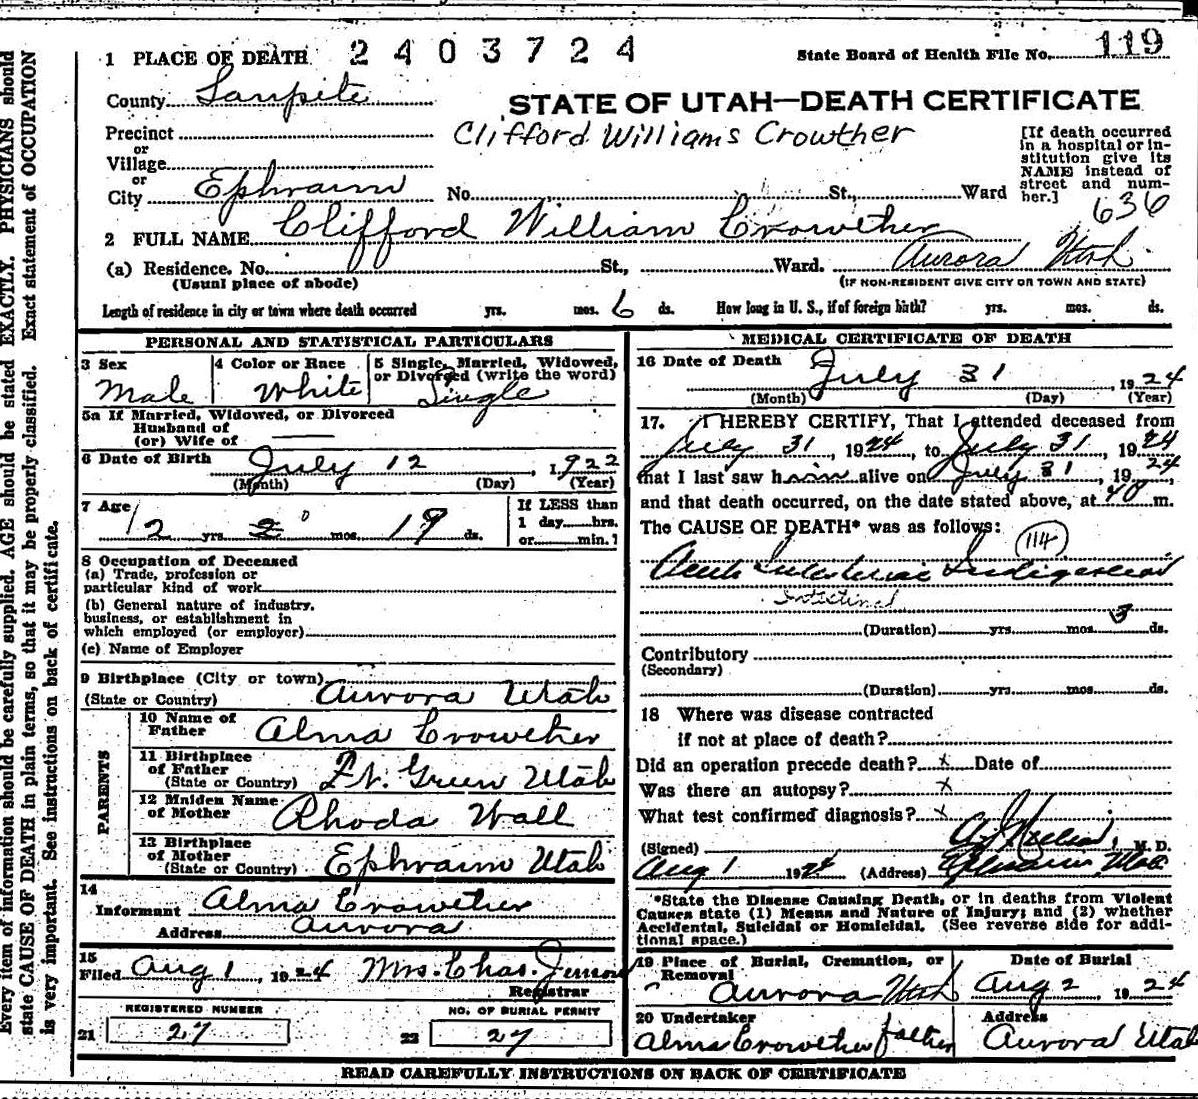 1 PLACE OF DEATH 2403724 State Board of Health File No. 119
County Sanpete
STATE OF UTAH—DEATH CERTIFICATE
Clifford Williams Crowther
Precinct
or
Village
or
City Ephraim No. St., Ward
[If death occurred
in a hospital or in-
stitution give its
NAME instead of
street and num-
ber.]
636
2 FULL NAME Clifford William Crowther
(a) Residence. No. St., Ward. Aurora Utah
(Usual place of abode) (IF NON-RESIDENT GIVE CITY OR TOWN AND STATE)
Length of residence in city or town where death occurred yrs. mos. 6 ds. How long in U. S., if of foreign birth? yrs. mos. ds.
PERSONAL AND STATISTICAL PARTICULARS
3 Sex 4 Color or Race 5 Single, Married, Widowed,
or Divorced (write the word)
Male White Single
5a If Married, Widowed, or Divorced
Husband of
(or) Wife of
6 Date of Birth July 12, 1922
(Month) (Day) (Year)
7 Age 2 yrs. 2 0 mos. 19 ds.
If LESS than
1 day hrs.
or min.?
8 Occupation of Deceased
(a) Trade, profession or
particular kind of work
(b) General nature of industry,
business, or establishment in
which employed (or employer)
(c) Name of Employer
9 Birthplace (City or town)
(State or Country) Aurora Utah
PARENTS
10 Name of
Father Alma Crowther
11 Birthplace
of Father
(State or Country) Ft. Green Utah
12 Maiden Name
of Mother Rhoda Wall
13 Birthplace
of Mother
(State or Country) Ephraim Utah
14
Informant Alma Crowther
Address Aurora
15
Filed Aug 1, 1924 Mrs. Chas.
Registrar
REGISTERED NUMBER NO. OF BURIAL PERMIT
21 27 22 27
MEDICAL CERTIFICATE OF DEATH
16 Date of Death July 31, 1924
(Month) (Day) (Year)
17. I HEREBY CERTIFY, That I attended deceased from
July 31, 1924, to July 31, 1924
that I last saw him alive on July 31, 1924,
and that death occurred, on the date stated above, at m.
The CAUSE OF DEATH* was as follows:
114
Acute Intestinal Indigestion
Intestinal
(Duration) yrs. mos. 3 ds.
Contributory
(Secondary)
(Duration) yrs. mos. ds.
18 Where was disease contracted
if not at place of death?
Did an operation precede death? x Date of
Was there an autopsy? x
What test confirmed diagnosis? x
(Signed) M. D.
Aug 1 1924 (Address) Ephraim Utah
*State the Disease Causing Death, or in deaths from Violent
Causes state (1) Means and Nature of Injury; and (2) whether
Accidental, Suicidal or Homicidal. (See reverse side for addi-
tional space.)
19 Place of Burial, Cremation, or
Removal
Aurora Utah
Date of Burial
Aug 2, 1924
20 Undertaker
Alma Crowther father
Address
Aurora Utah
READ CAREFULLY INSTRUCTIONS ON BACK OF CERTIFICATE
Every item of information should be carefully supplied. AGE should be stated EXACTLY. PHYSICIANS should
state CAUSE OF DEATH in plain terms, so that it may be properly classified. Exact statement of OCCUPATION
is very important. See instructions on back of certificate.